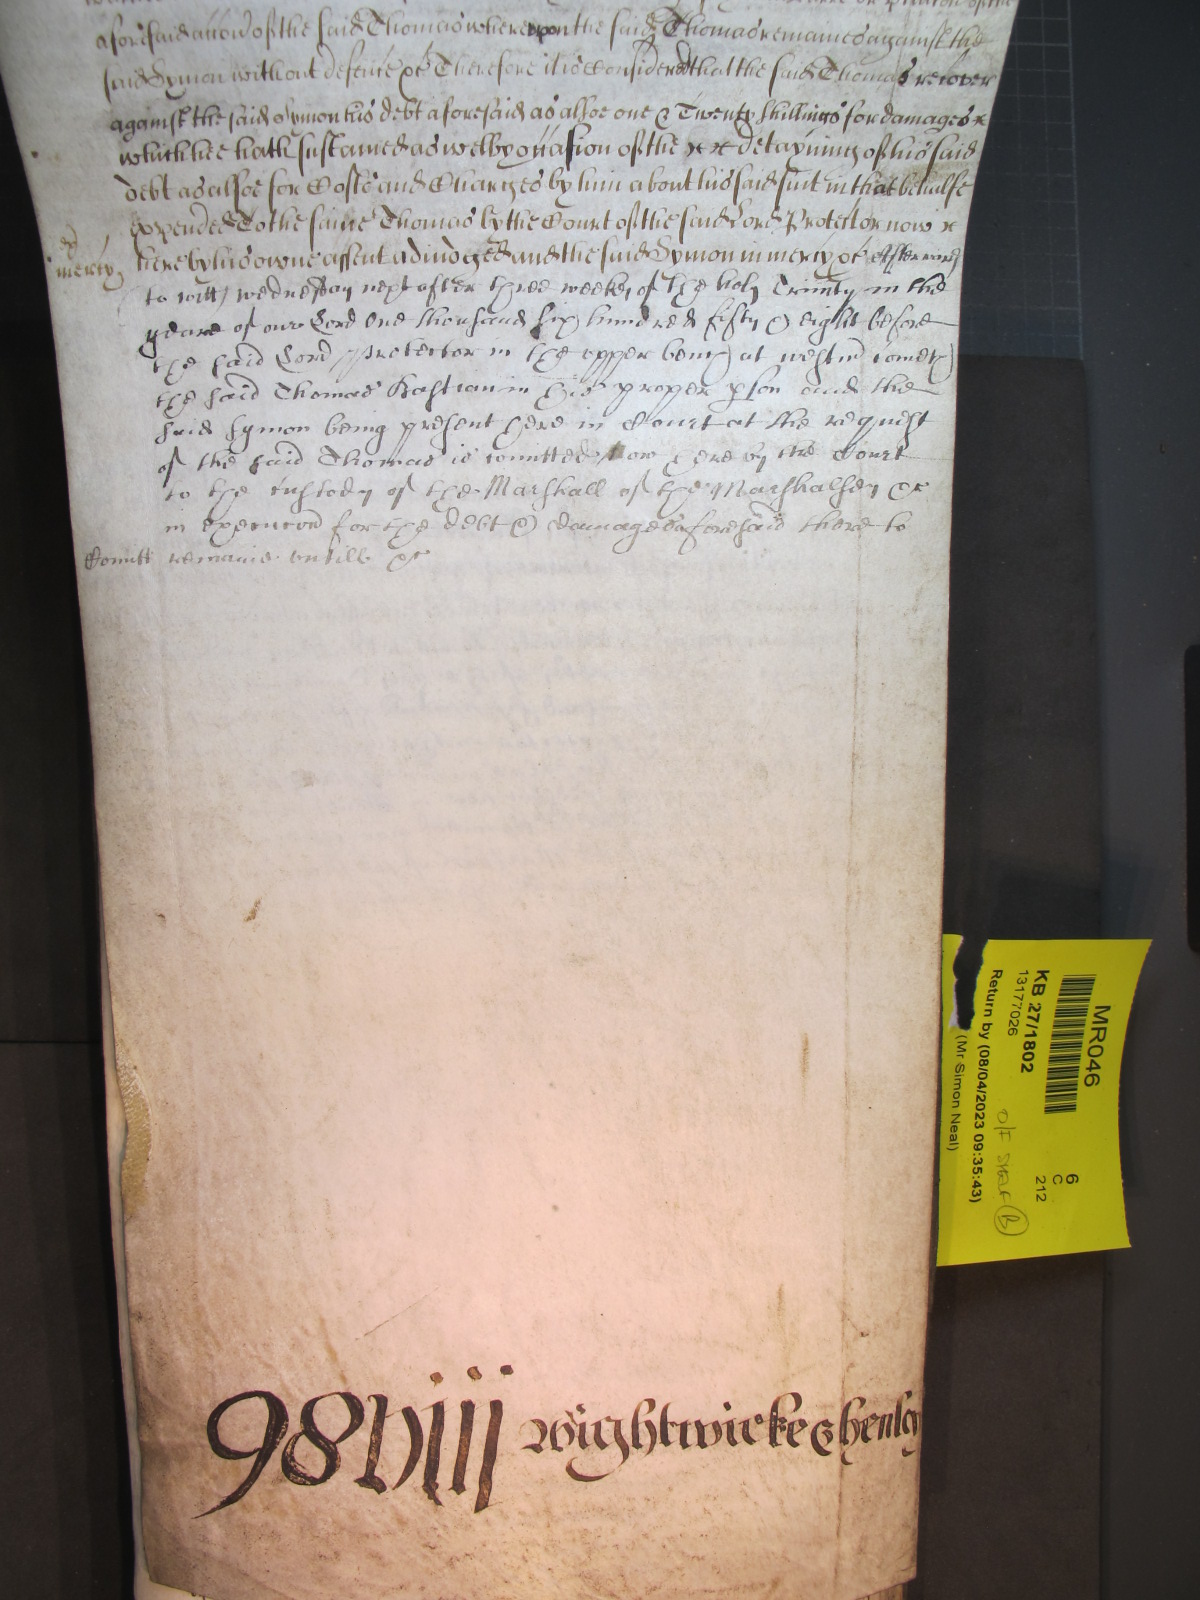 aforesaid accion of the said Thomas whereupon the said Thomas remaines against the
said Symon without defence &c Therefore it is considered that the said Thomas recover
against the said Symon his debt aforesaid as alsoe one & Twenty shillings for damages
which hee hath sustained as well by occasion of the detayning of his said
debt as alsoe for Costs and Charges by him about his said suit in that behalfe
expended To the same Thomas by the Court of the said Lord Protector now
mercy
here by his owne assent adiudged and the said Symon in mercy &c Afterward
to witt wednesday next after three weekes of the holy Trinity in the
yeare of our Lord One thousand six hundred fifty & eight before
the said Lord Protector in the upper bench at westm cometh
the said Thomas Bastian in his proper pson and the
said Symon being present here in Court at the request
of the said Thomas is comitted now here by the Court
to the custody of the Marshall of the Marshalsey &c
in execucon for the debt & damages aforesaid there to
Comitt remaine untill &c
98 viij Wightwicke & henley
MR046
KB 27/1802
13177026
Return by (08/04/2023 09:35:43)
(Mr Simon Neal)
6
C
212
O/F SHELF B